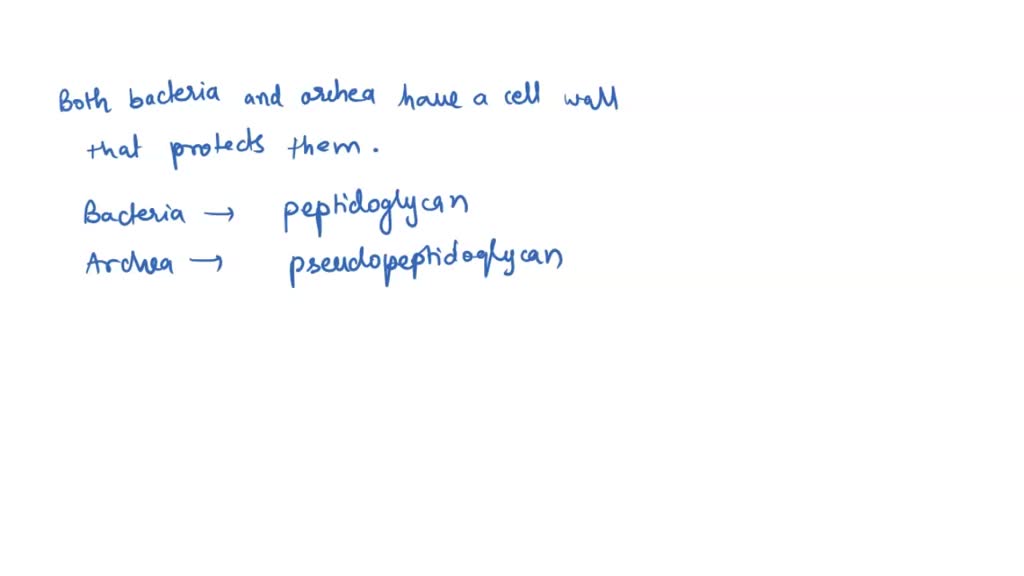 Both bacteria and archea have a cell wall
that protects them.
Bacteria → peptidoglycan
Archea → pseudopeptidoglycan